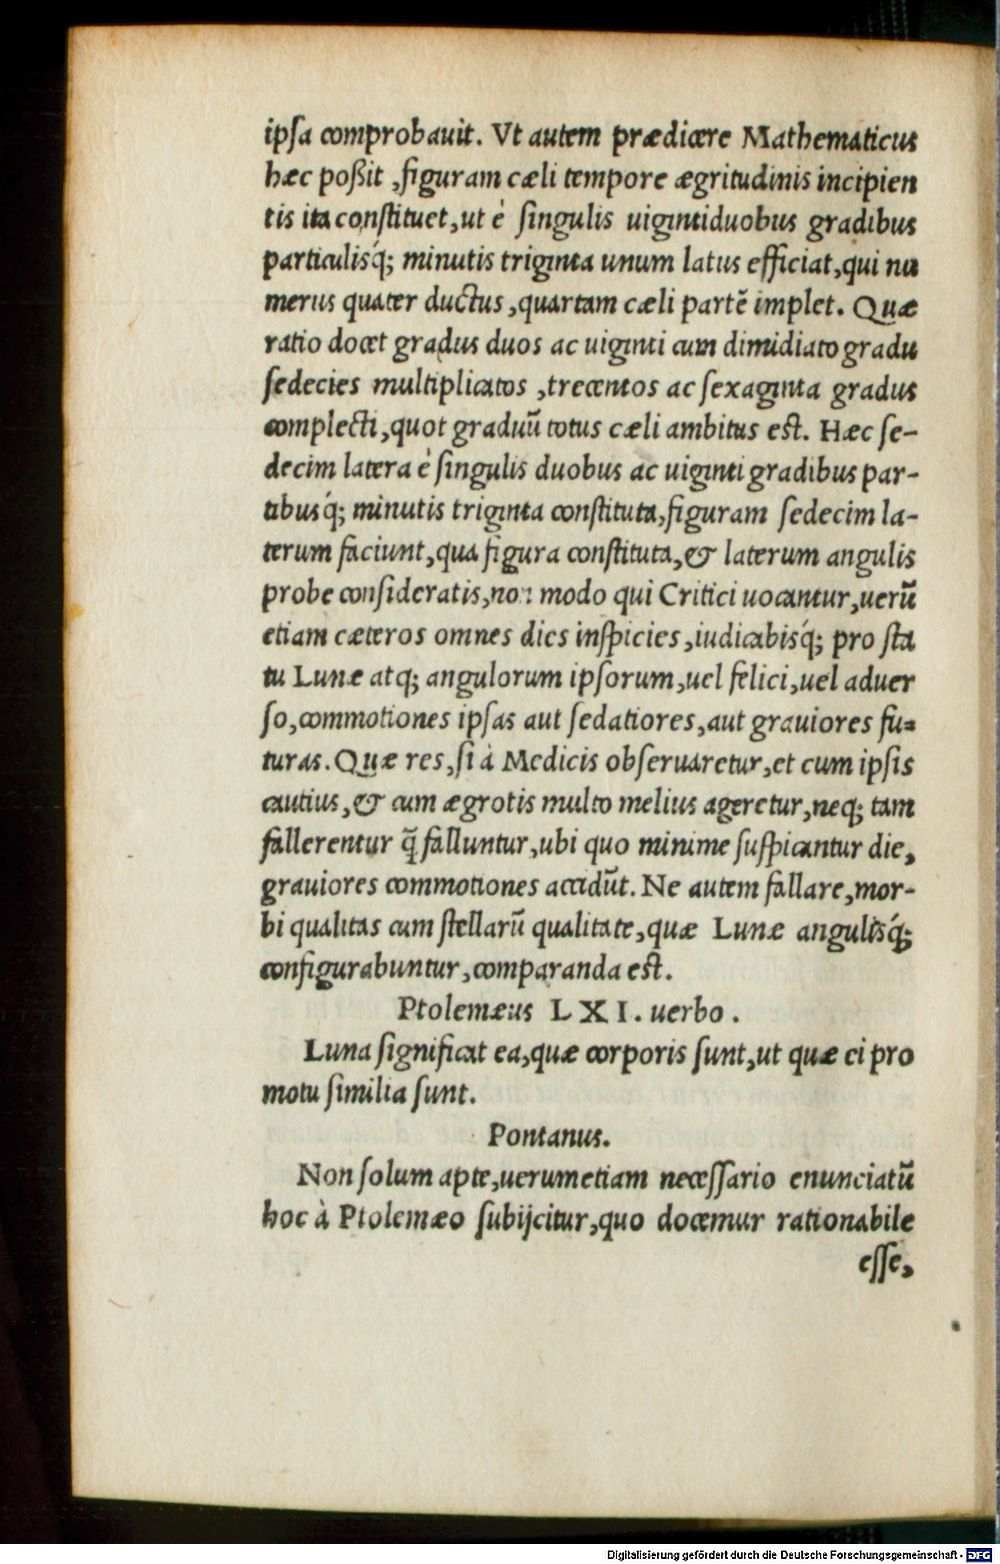 ipſa comprobauit. Vt autem prædicere Mathematicus
hæc poßit, figuram cæli tempore ægritudinis incipien
tis ita conſtituet, ut è ſingulis uigintiduobus gradibus
particulisq́; minutis triginta unum latus efficiat, qui nu
merus quater ductus, quartam cæli partē implet. Quæ
ratio docet gradus duos ac uiginti cum dimidiato gradu
ſedecies multiplicatos, trecentos ac ſexaginta gradus
complecti, quot graduū totus cæli ambitus eſt. Hæc ſe-
decim latera è ſingulis duobus ac uiginti gradibus par-
tibusq́; minutis triginta conſtituta, figuram ſedecim la-
terum faciunt, qua figura conſtituta, & laterum angulis
probe conſideratis, non modo qui Critici uocantur, uerū
etiam cæteros omnes dies inſpicies, iudicabisq́; pro ſta
tu Lunæ atq; angulorum ipſorum, uel felici, uel aduer
ſo, commotiones ipſas aut ſedatiores, aut grauiores fu-
turas. Quæ res, ſi à Medicis obſeruaretur, et cum ipſis
cautius, & cum ægrotis multo melius ageretur, neq; tam
fallerentur q̄ falluntur, ubi quo minime ſuſpicantur die,
grauiores commotiones accidūt. Ne autem fallare, mor-
bi qualitas cum ſtellarū qualitate, quæ Lunæ angulisq́;
configurabuntur, comparanda eſt.
Ptolemæus LXI. uerbo.
Luna ſignificat ea, quæ corporis ſunt, ut quæ ei pro
motu ſimilia ſunt.
Pontanus.
Non ſolum apte, uerumetiam neceſſario enunciatū
hoc à Ptolemæo ſubijcitur, quo docemur rationabile
eſſe,
Digitalisierung gefördert durch die Deutsche Forschungsgemeinschaft - DFG